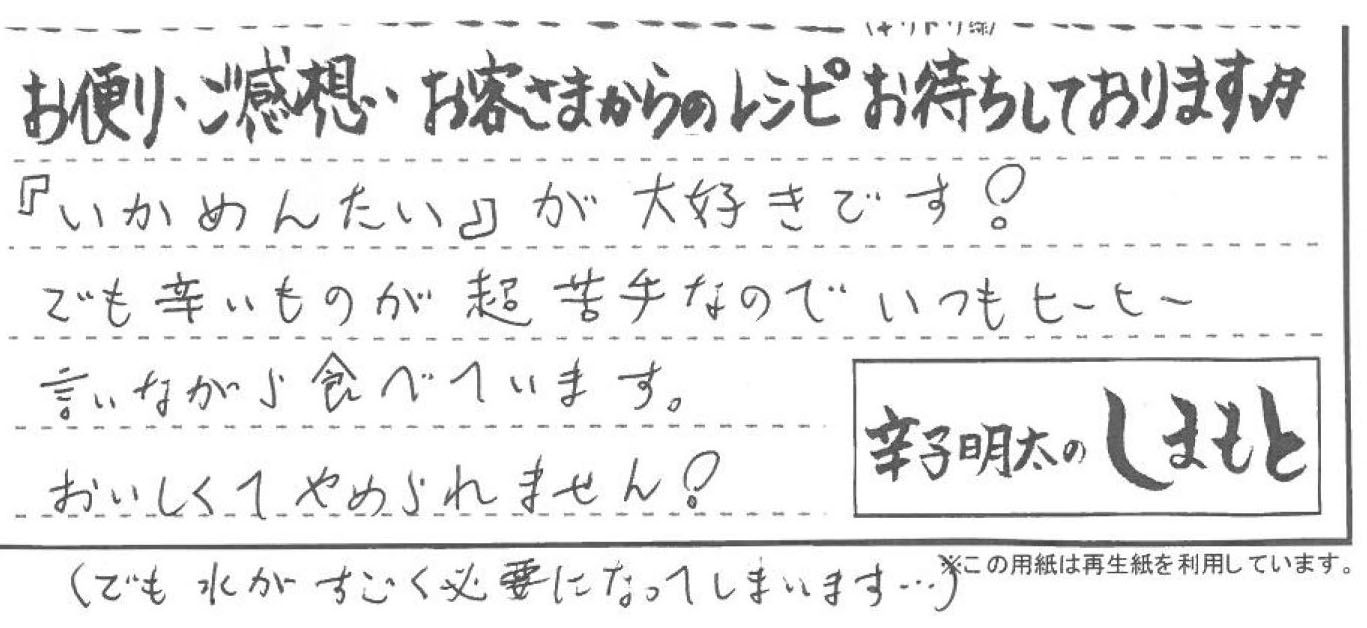 (キリトリ線)
お便り・ご感想・お客さまからのレシピお待ちしております♬
『いかめんたい』が大好きです!
でも辛いものが超苦手なのでいつもヒーヒー
言いながら食べています。
おいしくてやめられません!
辛子明太のしまもと
(でも水がすごく必要になってしまいます…)
※この用紙は再生紙を利用しています。